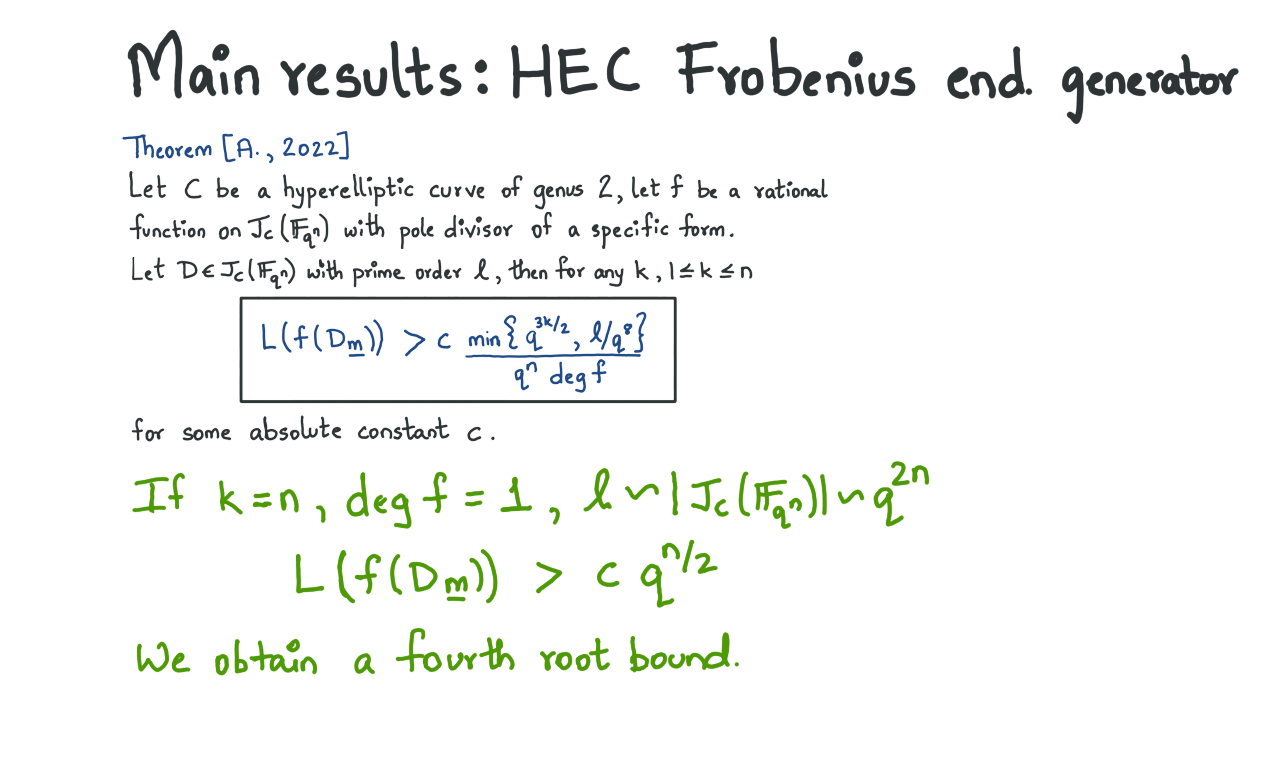 Main results: HEC Frobenius end. generator
Theorem [A., 2022]
Let C be a hyperelliptic curve of genus 2, let f be a rational
function on J_C(𝔽_{q^n}) with pole divisor of a specific form.
Let D ∈ J_C(𝔽_{q^n}) with prime order ℓ, then for any k, 1 ≤ k ≤ n
L(f(D_m)) > c min{q^{3k/2}, ℓ/q^8} / q^n deg f
for some absolute constant c.
If k = n, deg f = 1, ℓ ~ |J_C(𝔽_{q^n})| ~ q^{2n}
L(f(D_m)) > c q^{n/2}
We obtain a fourth root bound.